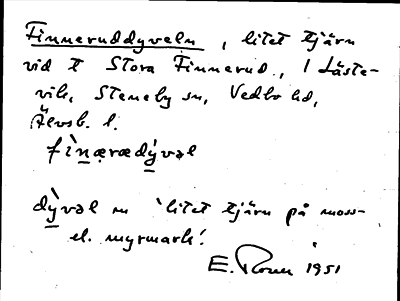 Finneruddyveln, litet tjärn
vid t Stora Finnerud, i Låste-
vik, Steneby sn, Vedbo hd,
Älvsb. l.
fìnærædývəl
dỳvəl m 'litet tjärn på moss-
el. myrmark'.
E. 1951